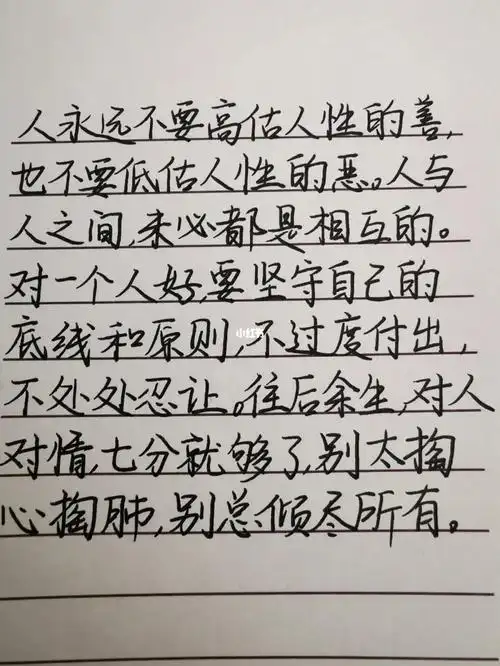 人永远不要高估人性的善，
也不要低估人性的恶。人与
人之间，未必都是相互的。
对一个人好，要坚守自己的
小红书
底线和原则，不过度付出，
不处处忍让。往后余生，对人
对情，七分就够了，别太掏
心掏肺，别总倾尽所有。